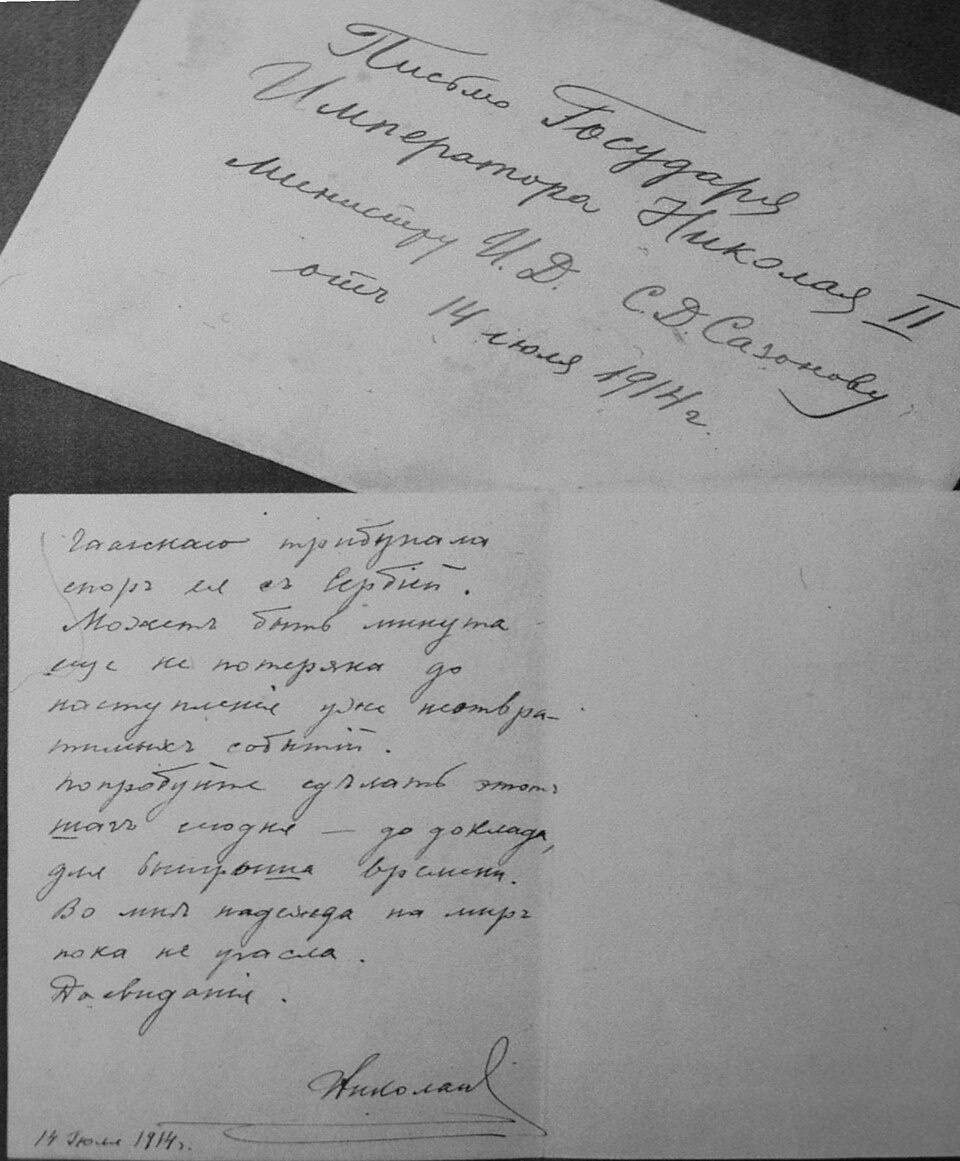 Письмо Государя
Императора Николая II
министру И.Д. С.Д. Сазонову
отъ 14 июля 1914 г.
Гаагскаго трибунала
споръ ея съ Сербіей.
Можетъ быть минута
еще не потеряна до
наступленія уже неотвра-
тимыхъ событій.
Попробуйте сдѣлать этотъ
шагъ сегодня — до доклада,
для выигрыша времени.
Во мнѣ надежда на миръ
пока не угасла.
До свиданія.
Николай
14 Іюля 1914 г.